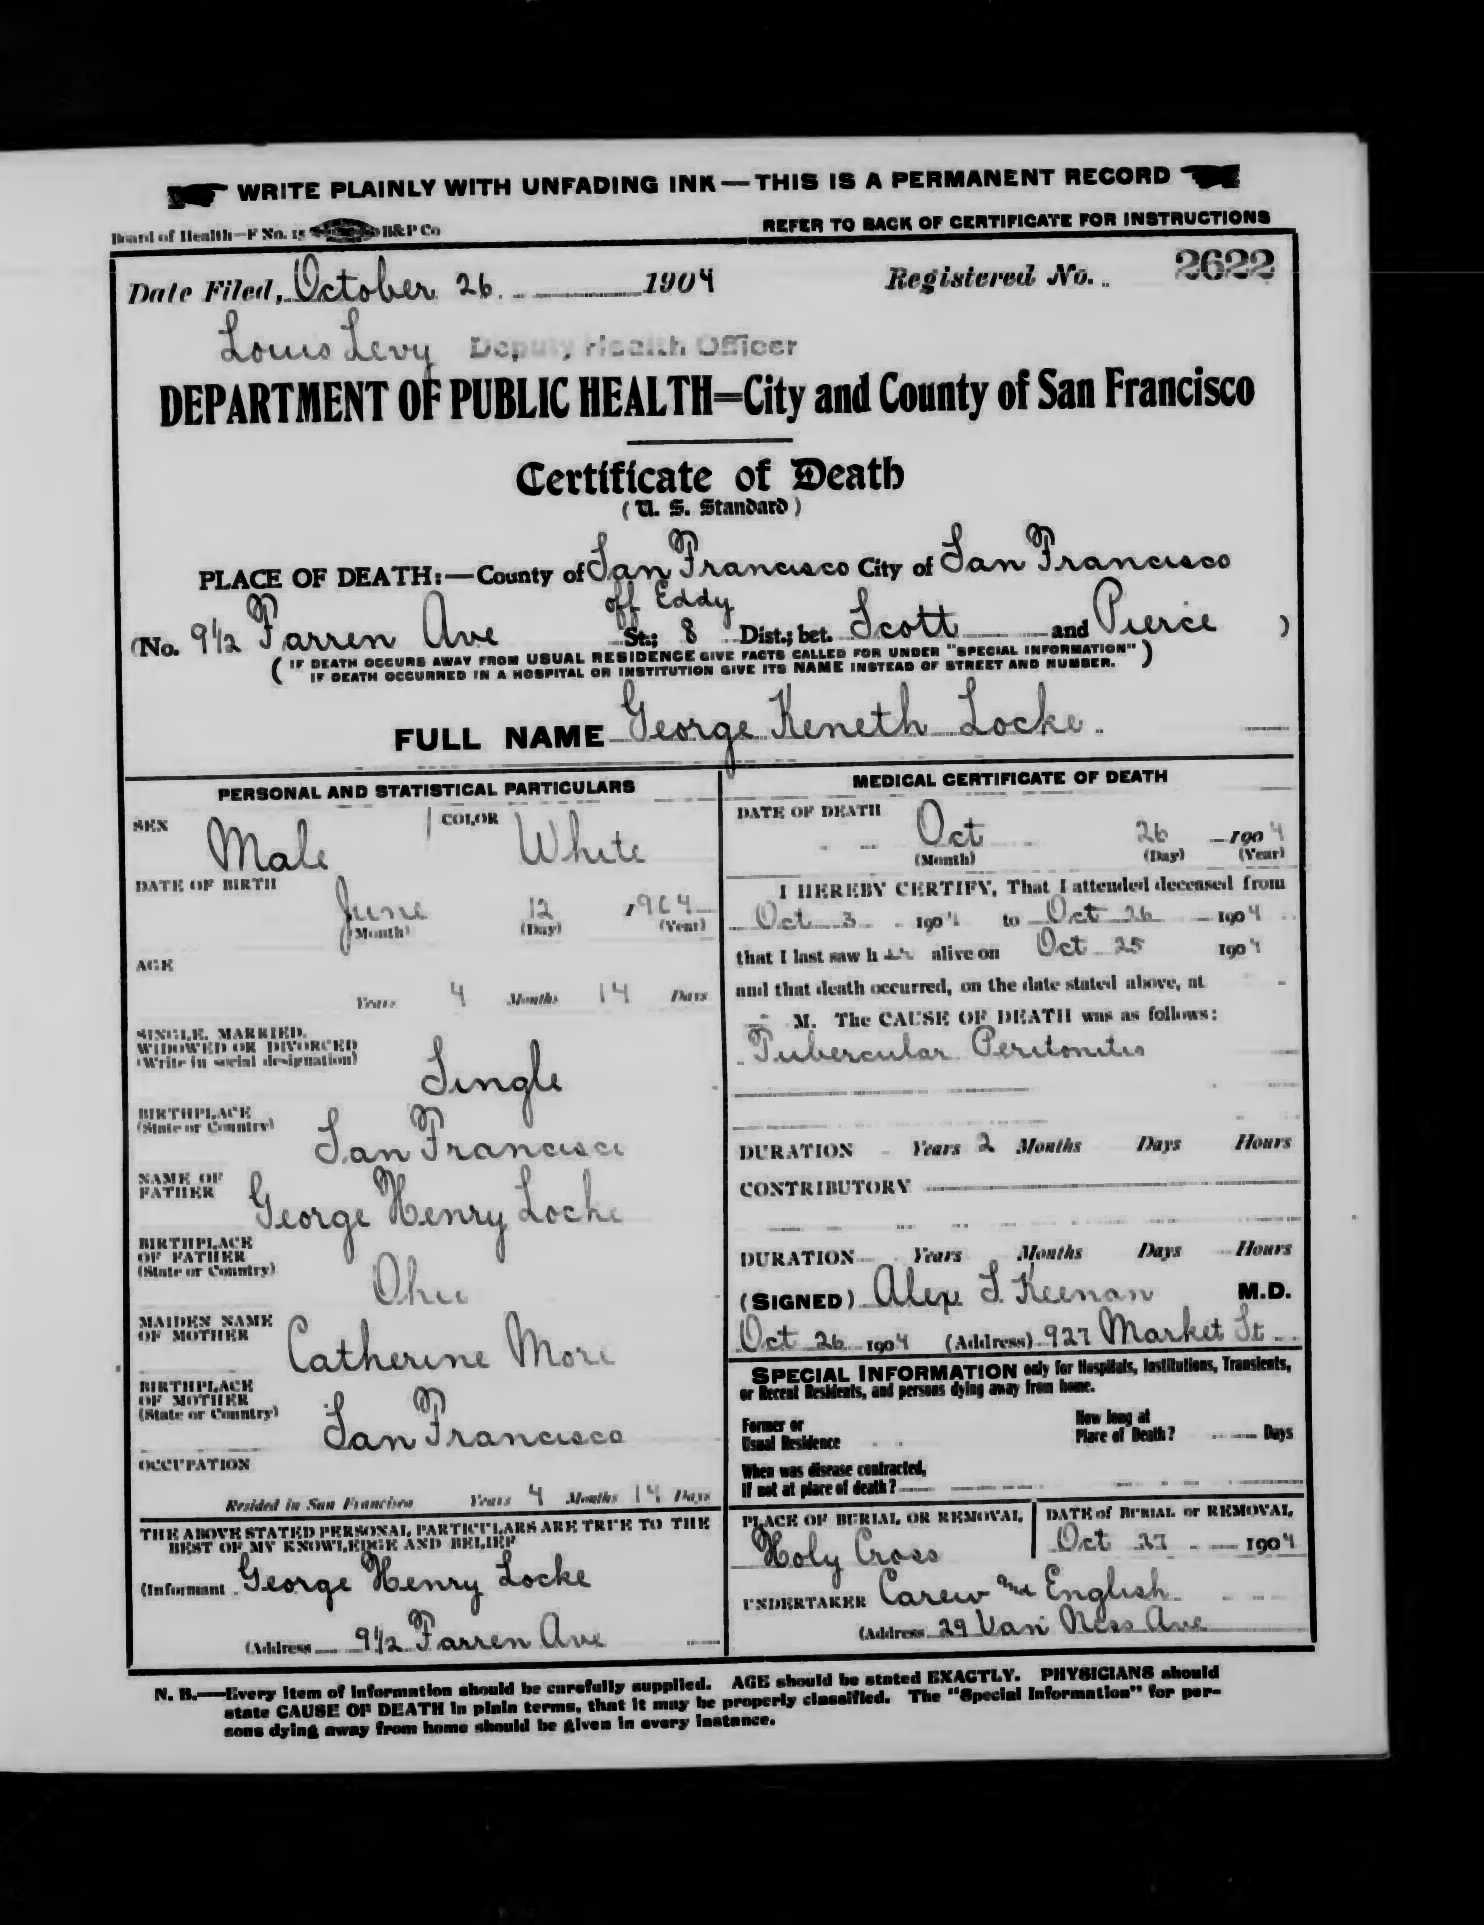 WRITE PLAINLY WITH UNFADING INK—THIS IS A PERMANENT RECORD
Board of Health—F No. 15 B&P Co
REFER TO BACK OF CERTIFICATE FOR INSTRUCTIONS
Date Filed, October 26 1904 Registered No. 2622
Louis Levy Deputy Health Officer
DEPARTMENT OF PUBLIC HEALTH=City and County of San Francisco
Certificate of Death
(U. S. Standard)
PLACE OF DEATH:—County of San Francisco City of San Francisco
off Eddy
(No. 9 1/2 Farren Ave St.; 8 Dist.; bet. Scott and Pierce )
( IF DEATH OCCURS AWAY FROM USUAL RESIDENCE GIVE FACTS CALLED FOR UNDER "SPECIAL INFORMATION" )
IF DEATH OCCURRED IN A HOSPITAL OR INSTITUTION GIVE ITS NAME INSTEAD OF STREET AND NUMBER.
FULL NAME George Keneth Locke
PERSONAL AND STATISTICAL PARTICULARS
SEX Male COLOR White
DATE OF BIRTH
June 12 1904
(Month) (Day) (Year)
AGE
Years 4 Months 14 Days
SINGLE, MARRIED,
WIDOWED OR DIVORCED
(Write in social designation) Single
BIRTHPLACE
(State or Country) San Francisco
NAME OF
FATHER George Henry Locke
BIRTHPLACE
OF FATHER
(State or Country) Ohio
MAIDEN NAME
OF MOTHER Catherine More
BIRTHPLACE
OF MOTHER
(State or Country) San Francisco
OCCUPATION
Resided in San Francisco Years 4 Months 14 Days
THE ABOVE STATED PERSONAL PARTICULARS ARE TRUE TO THE
BEST OF MY KNOWLEDGE AND BELIEF
(Informant George Henry Locke
(Address 9 1/2 Farren Ave
MEDICAL CERTIFICATE OF DEATH
DATE OF DEATH
Oct 26 1904
(Month) (Day) (Year)
I HEREBY CERTIFY, That I attended deceased from
Oct 3 1904 to Oct 26 1904
that I last saw h im alive on Oct 25 1904
and that death occurred, on the date stated above, at
M. The CAUSE OF DEATH was as follows:
Tubercular Peritonitis
DURATION Years 2 Months Days Hours
CONTRIBUTORY
DURATION Years Months Days Hours
(SIGNED) Alex S. Keenan M.D.
Oct 26 1904 (Address) 927 Market St
SPECIAL INFORMATION only for Hospitals, Institutions, Transients,
or Recent Residents, and persons dying away from home.
Former or
Usual Residence
How long at
Place of Death? Days
When was disease contracted,
If not at place of death?
PLACE OF BURIAL OR REMOVAL
Holy Cross
DATE of BURIAL or REMOVAL
Oct 27 1904
UNDERTAKER Carew and English
(Address 29 Van Ness Ave
N. B.—Every item of information should be carefully supplied. AGE should be stated EXACTLY. PHYSICIANS should
state CAUSE OF DEATH in plain terms, that it may be properly classified. The "Special Information" for per-
sons dying away from home should be given in every instance.